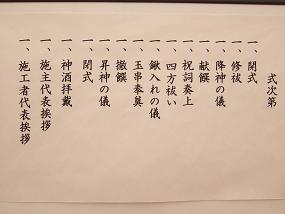 式次第
一、開式
一、修祓
一、降神の儀
一、献饌
一、祝詞奏上
一、四方祓い
一、鍬入れの儀
一、玉串奉奠
一、撤饌
一、昇神の儀
一、閉式
一、神酒拝戴
一、施主代表挨拶
一、施工者代表挨拶